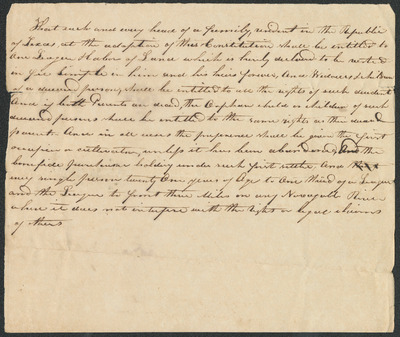 That each and every head of a family, resident in the Republic
of Texas at the adoption of this Constitution shall be entitled to
One League & Labor of Land which is hereby declared to be vested
in fee simple in him and his heirs forever, And Widows & children
of a deceased person, shall be entitled to all the rights of such decedent
And if both Parents are dead the Orphan child or children of such
deceased persons shall be entitled to the same rights as the dead
parent. And in all cases the preference shall be given the first
occupier or cultivator, unless it has been abandoned, And the
bonafide purchaser holding under such first settler. And
every single person twenty One years of Age to One third of a League
and the League to front three Miles on any Navagable River
where it does not interfere with the rights or legal claims
of others